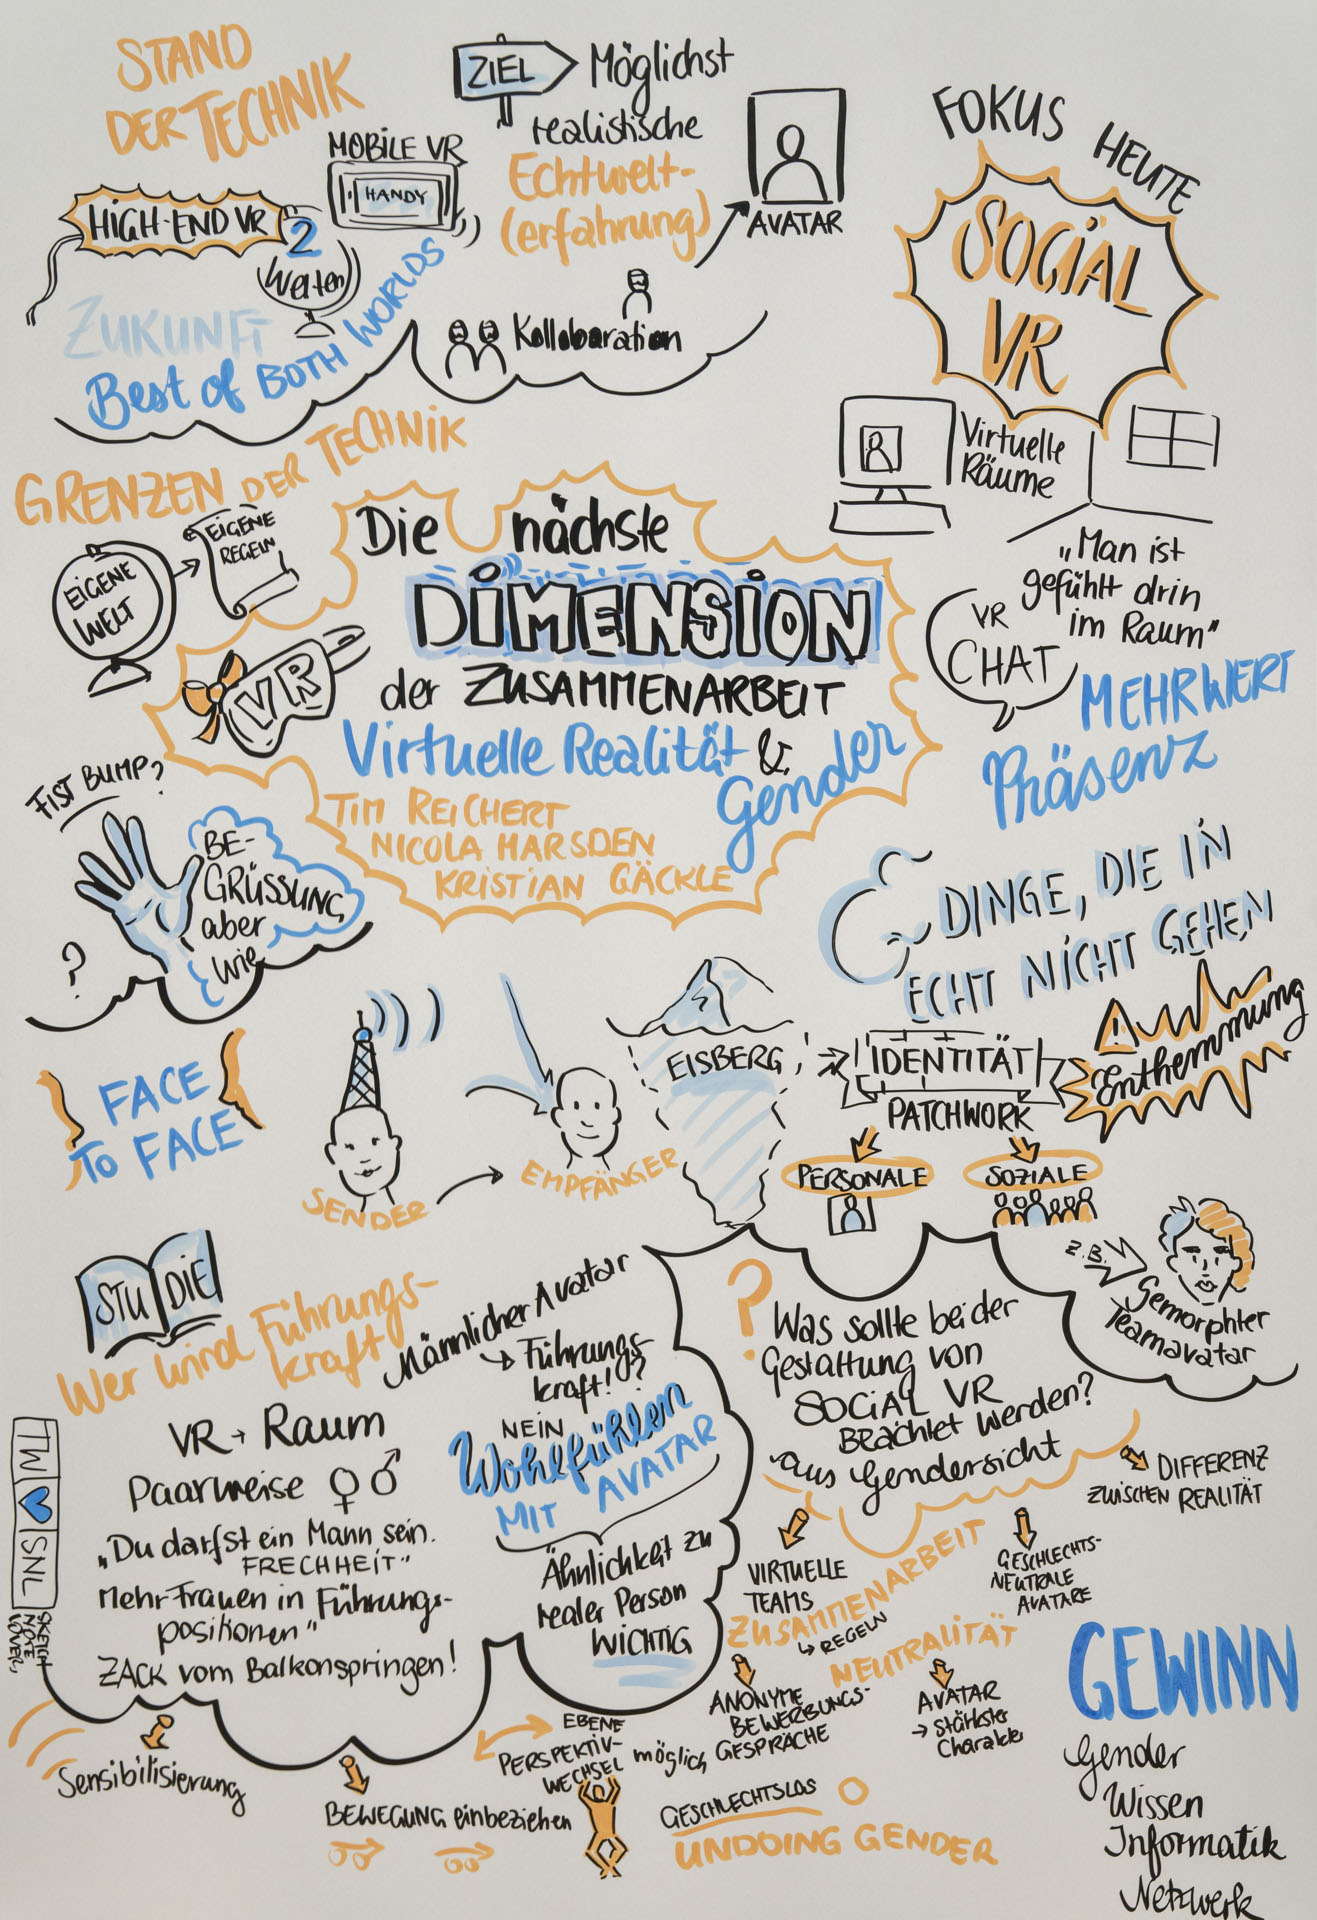 STAND
DER TECHNIK
ZIEL
Möglichst
realistische
Echtwelt-
(erfahrung)
AVATAR
MOBILE VR
HANDY
HIGH-END VR
2
Welten
ZUKUNFT
Best of BOTH WORLDS
Kollaboration
FOKUS HEUTE
SOCIAL
VR
Virtuelle
Räume
„Man ist
gefühlt drin
im Raum"
VR
CHAT
MEHRWERT
Präsenz
GRENZEN DER TECHNIK
EIGENE
WELT
EIGENE
REGELN
Die nächste
DIMENSION
der ZUSAMMENARBEIT
Virtuelle Realität &
Gender
VR
TIM REICHERT
NICOLA MARSDEN
KRISTIAN GÄCKLE
FIST BUMP?
BE-
GRÜSSUNG
aber
wie
?
DINGE, DIE IN
ECHT NICHT GEHEN
FACE
TO FACE
SENDER
EMPFÄNGER
EISBERG
IDENTITÄT
PATCHWORK
Enthemmung
PERSONALE
SOZIALE
z.B.
Gemorphter
Teamavatar
STUDIE
Wer wird Führungs-
kraft
Männlicher Avatar
Führungs-
kraft!?
NEIN
Wohlfühlen
MIT AVATAR
Ähnlichkeit zu
realer Person
WICHTIG
VR → Raum
Paarweise ♀ ♂
„Du darfst ein Mann sein.
FRECHHEIT"
Mehr Frauen in Führungs-
positionen"
ZACK vom Balkon springen!
TW
SNL
SKETCH
NOTE
LOVERS
?
Was sollte bei der
Gestaltung von
SOCIAL VR
BEACHTET WERDEN?
aus Gendersicht
DIFFERENZ
ZWISCHEN REALITÄT
VIRTUELLE
TEAMS
ZUSAMMENARBEIT
↳ REGELN
GESCHLECHTS-
NEUTRALE
AVATARE
NEUTRALITÄT
ANONYME
BEWERBUNGS-
GESPRÄCHE
AVATAR
→ stärkster
Charakter
Sensibilisierung
BEWEGUNG einbeziehen
EBENE
PERSPEKTIV-
WECHSEL möglich
GESCHLECHTSLOS
UNDOING GENDER
GEWINN
Gender
Wissen
Informatik
Netzwerk